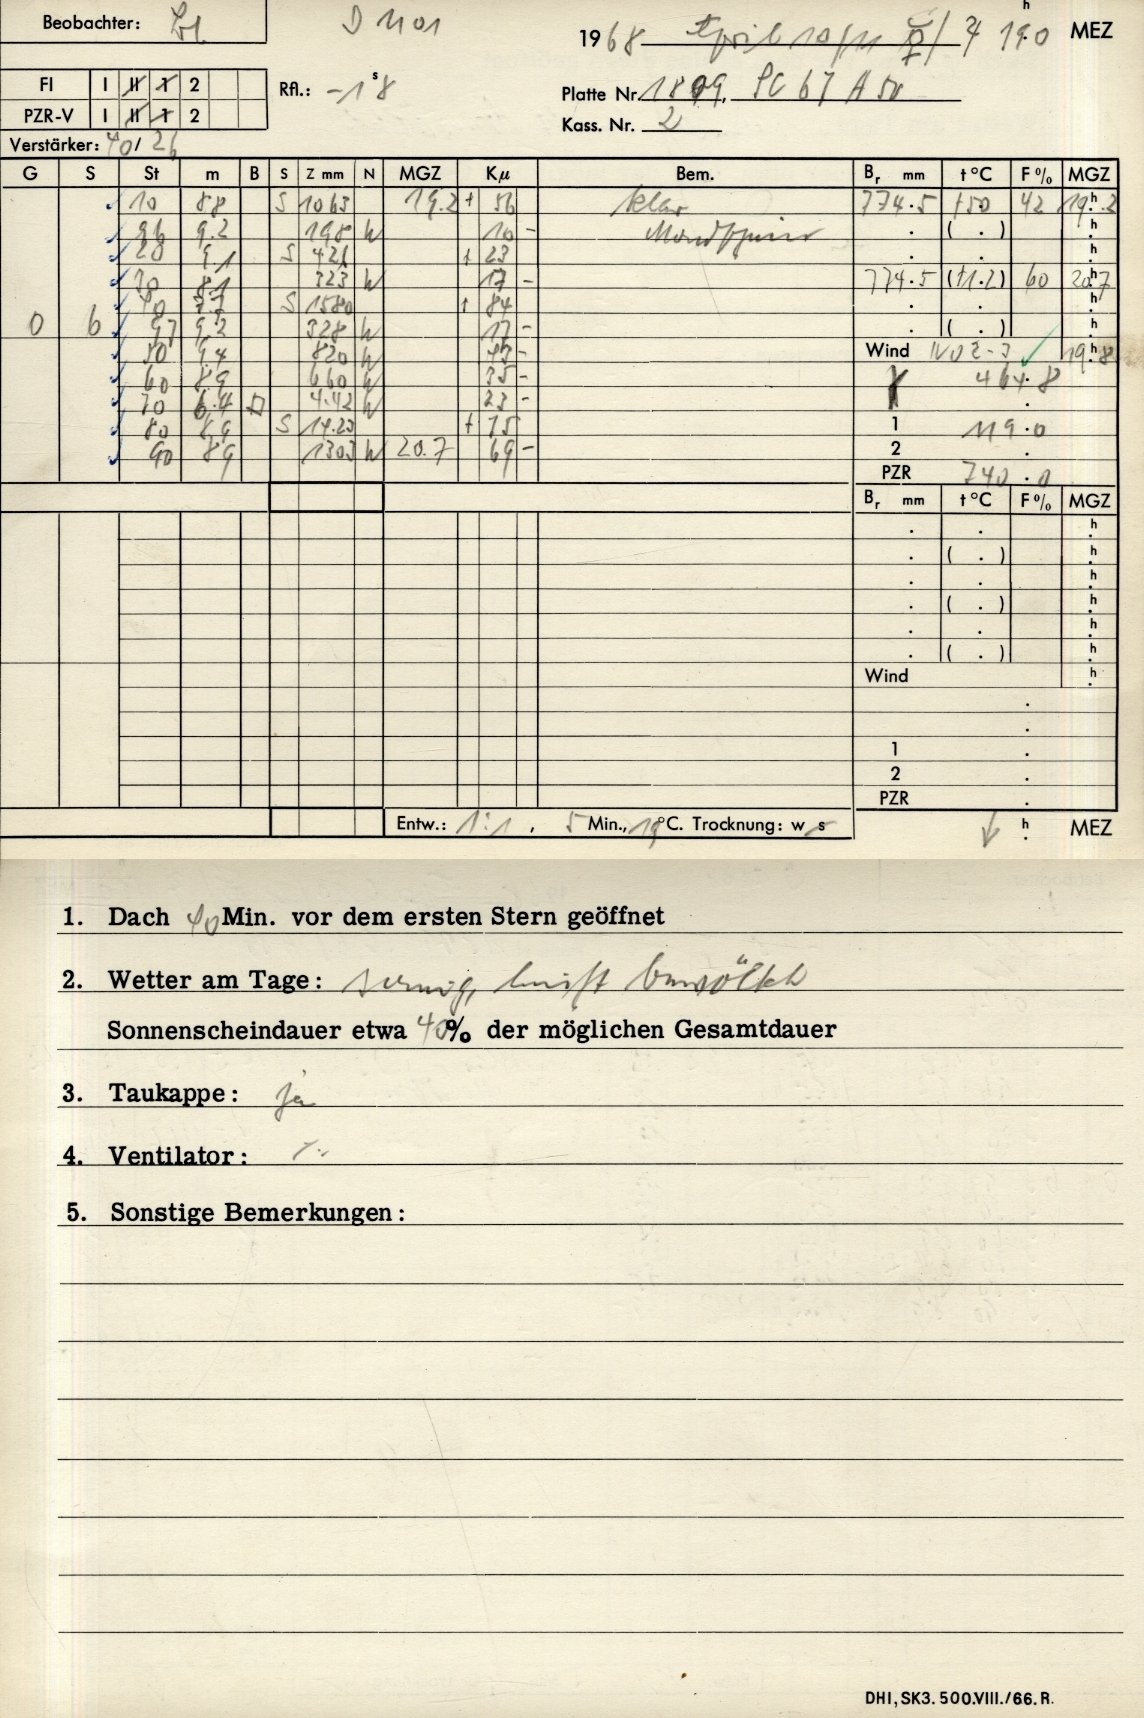 Beobachter:
D 1101
1968 April 10/11 ☿/♃ 19h.0 MEZ
FI I II 1 2
Rfl.: -1s8
PZR-V I II 1 2
Platte Nr. 1809, SC 67 A 50
Kass. Nr. 2
Verstärker: 40/26
G S St m B S Z mm N MGZ Kμ Bem. Br mm t °C F % MGZ
10 88 S 1063 19.2 + 56 klar 774.5 +50 42 19h.2
96 9.2 198 W 10 - Mondschein . ( . ) h.
20 9.1 S 421 + 23 . . h.
30 81 323 W 17 - 774.5 (+1.2) 60 20h7
40 77 S 1580 + 84 . . h.
0 6 97 9.2 328 W 17 - . ( . ) h.
50 9.4 820 W 43 - Wind NO 2-3 19h.8
60 89 660 W 35 - 464.8
70 6.4 4.42 W 23 - .
80 89 S 14.23 + 75 1 119.0
90 89 1303 W 20.7 69 - 2 .
PZR 740.0
Br mm t °C F % MGZ
. . h.
. ( . ) h.
. . h.
. ( . ) h.
. . h.
. ( . ) h.
Wind h.
.
.
1 .
2 .
PZR .
Entw.: 1:1, 5 Min., 19 °C. Trocknung: w s h. MEZ
1. Dach 40 Min. vor dem ersten Stern geöffnet
2. Wetter am Tage: sonnig, leicht bewölkt
Sonnenscheindauer etwa 40% der möglichen Gesamtdauer
3. Taukappe: ja
4. Ventilator:
5. Sonstige Bemerkungen:
DHI, SK3. 500.VIII./66. R.